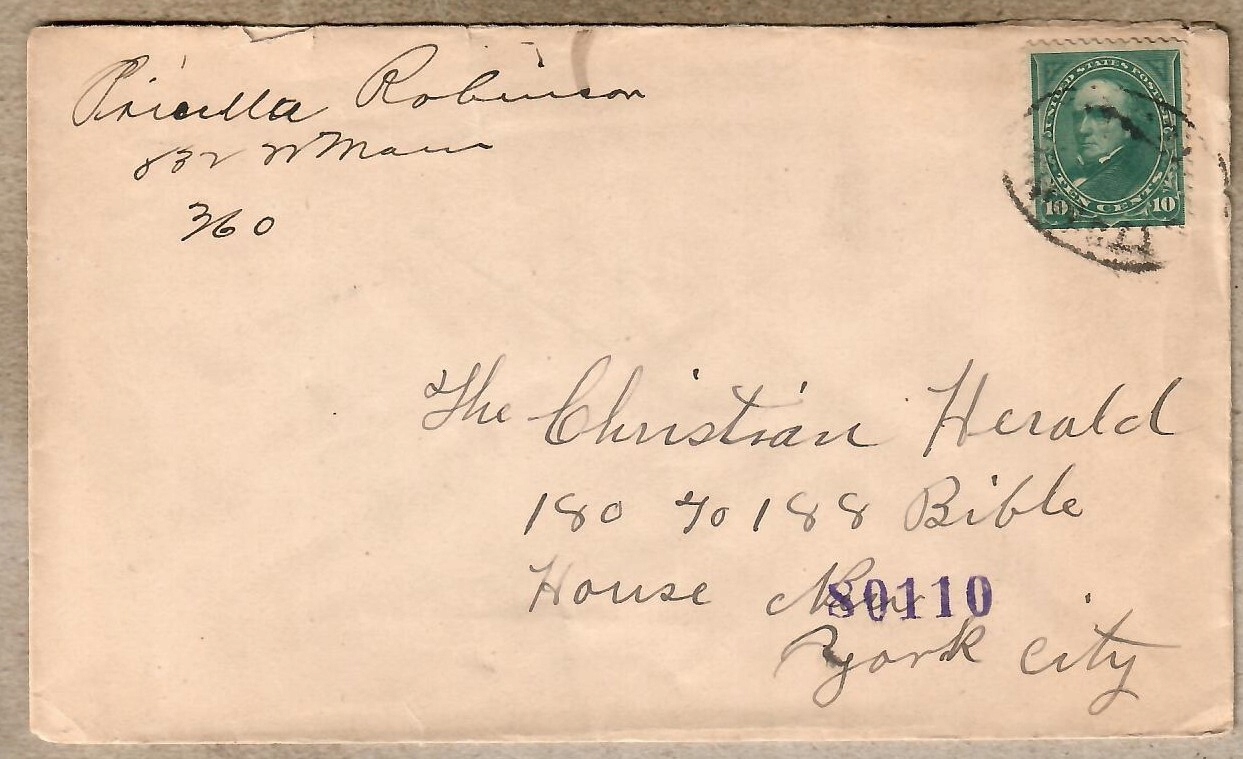 Pricilla Robinson
832 W Main
360
UNITED STATES POSTAGE
TEN CENTS
10 10
The Christian Herald
180 to 188 Bible
House New
80110
York City